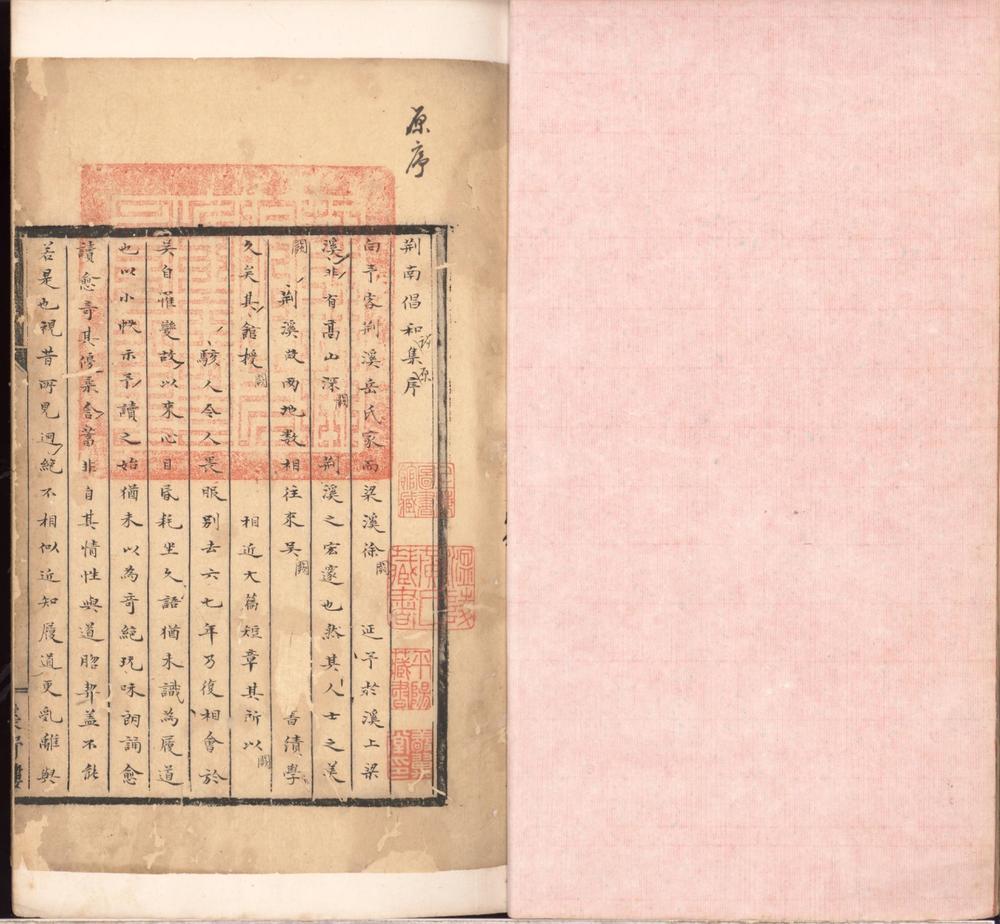 原序
荆南倡和集序
向予客荆溪岳氏家而梁溪徐闕 延予於溪上梁
溪非有高山深闕 荆溪之宏邃也然其人士之美
闕 荆溪故兩地數相往來吳闕 喜績學
久矣其館授闕 相近大篇短章其所以闕
駭人令人畏服別去六七年乃復相會於
吳自罹變故以來心目昏耗坐久語猶未識為履道
也以小帙示予讀之始猶未以為奇絕玩味朗誦愈
讀愈奇其停蓄非自其情性與道脗契蓋不能
若是也視昔所見迥絕不相似近知履道更亂離與